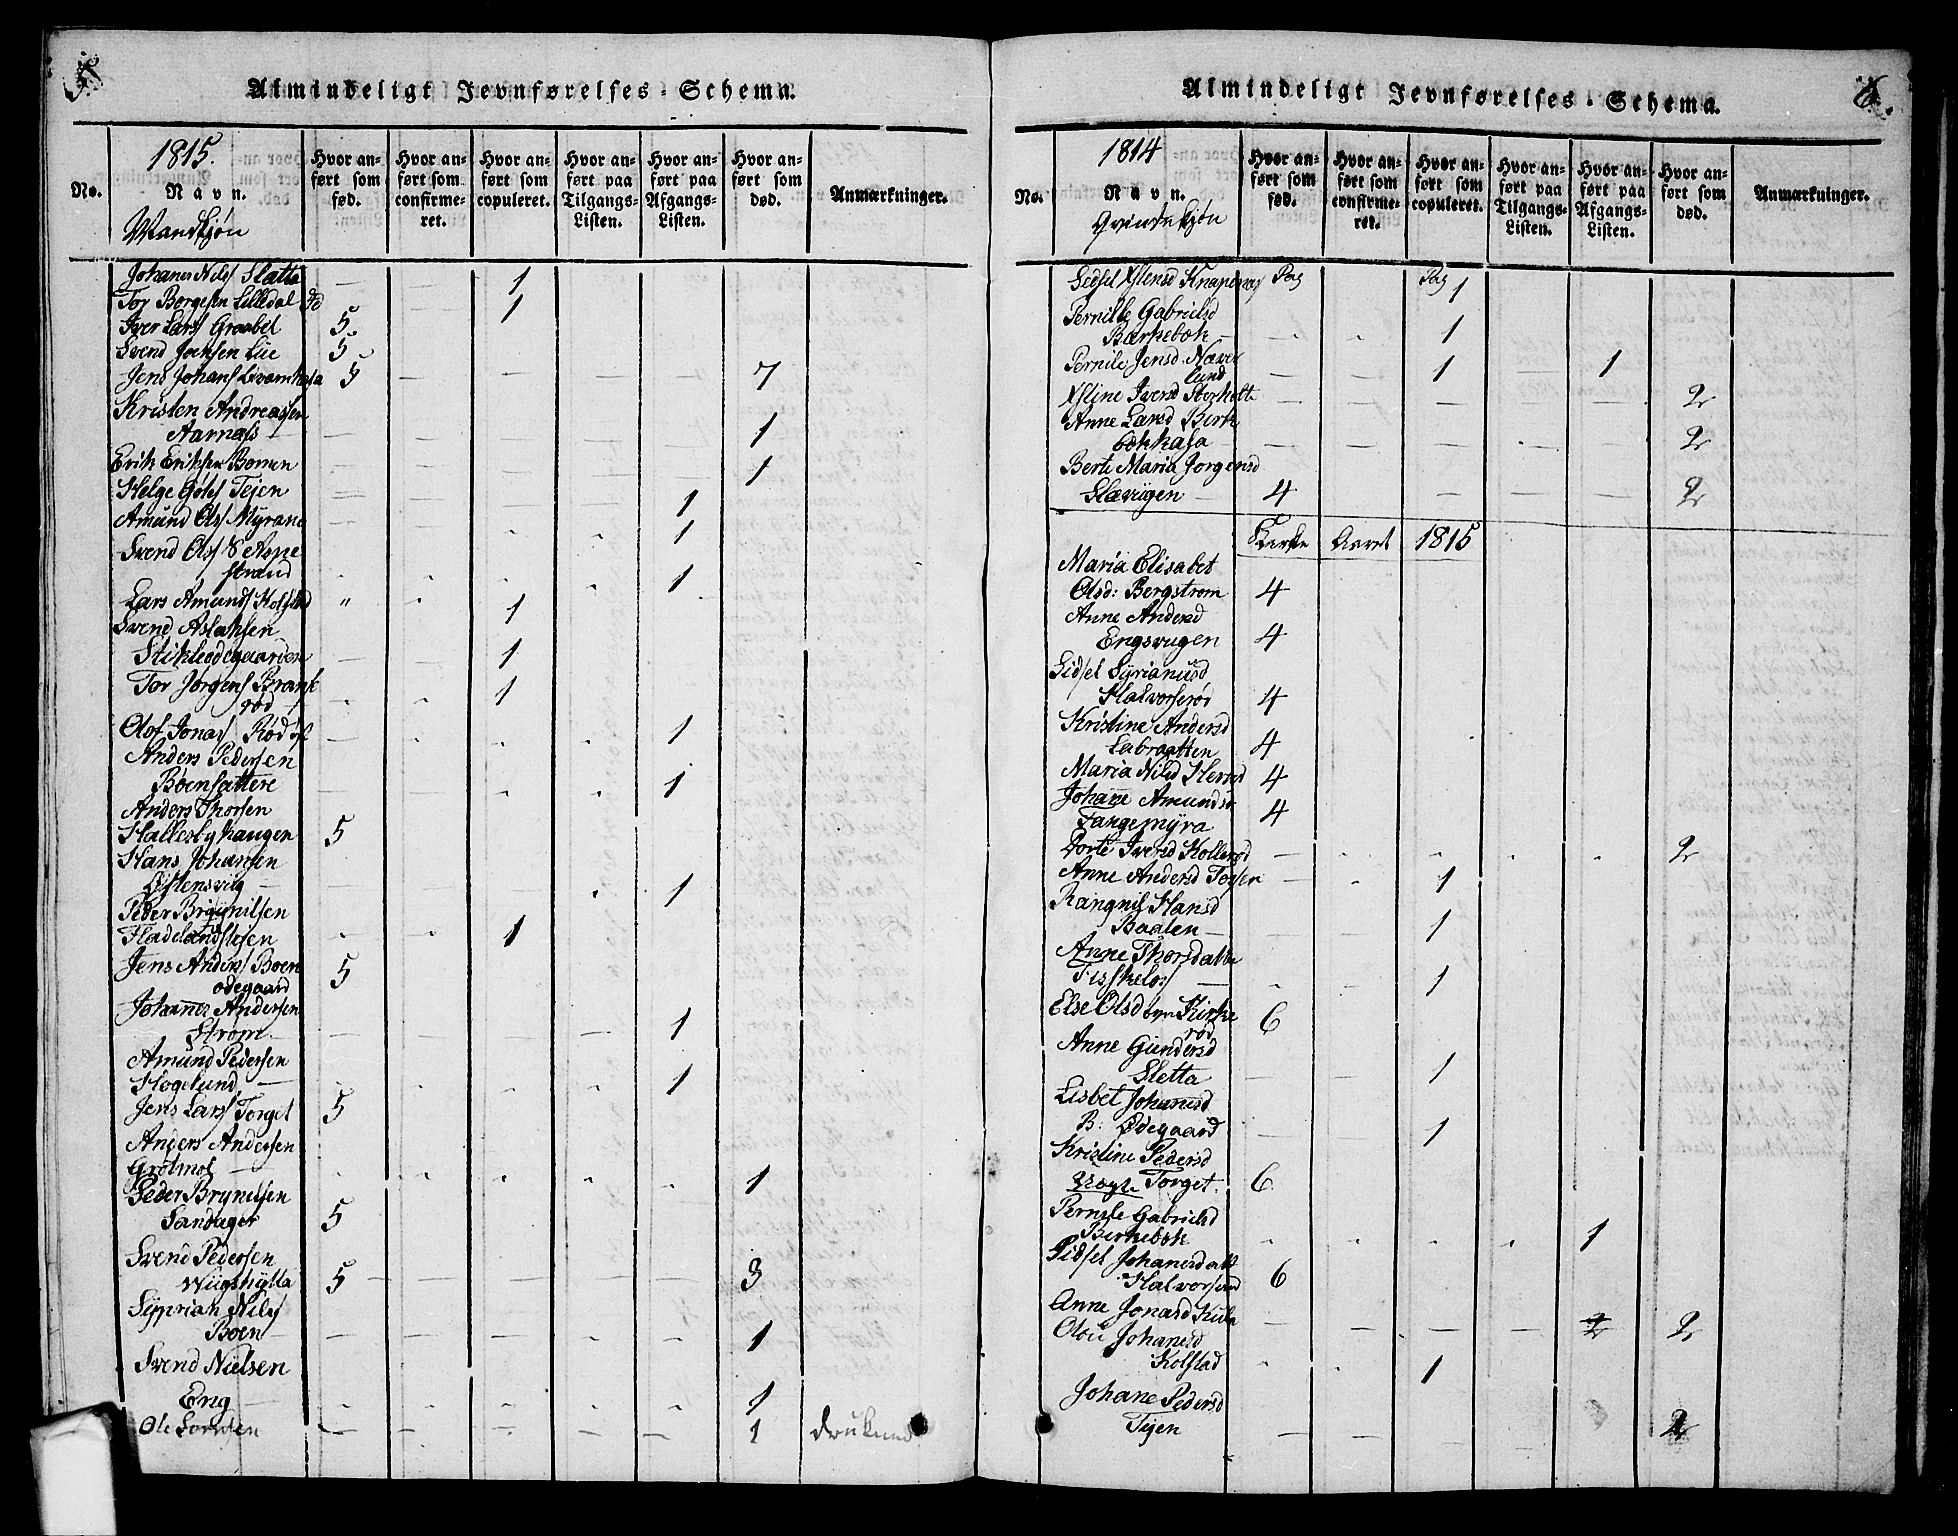 5
Almindeligt Jevnførelses-Schema.
1815.
No.
Navn.
Mandkjøn
Hvor anført som fød.
Hvor anført som confirmeret.
Hvor anført som copuleret.
Hvor anført paa Tilgangs-Listen.
Hvor anført paa Afgangs-Listen.
Hvor anført som død.
Anmærkninger.
Johanes Nils Slætta — — 1
Tor Borgesen Lilledal — 1
Iver Lars Graabel 5.
Svend Joensen Lüe 5
Jens Johans 5 — — — — 7
Kristen Andreassen
Aarnæs — — — — — 1
Erik Bomen — — — — — 1
Helge Tejen — — — — 1
Amund Ols Myrane 1
Svend Ols
strand 1
Lars Amunds Kolstad " 1
Svend Aslaksen
Stikleødegaarden — — 1
Tor Jørgens Brank
rød 1
Olof Jonas Rød 1
Anders Pedersen
Bøensættere 1
Anders Thorsen
Hallesbyhaugen 5
Hans Johansen
Øistensviig — 1
Peder Brynnilsen
Fladelandsløsen 1
Jens Anders Boen
ødegaard 5
Johannes Andersen
Strøm — 1
Amund Pedersen
Høgelund — 1
Jens Lars Torget 5
Anders Andersen
Grøtmol — 1
Peder Brynilsen
Sandager 5
Svend Pedersen
Wügshytta 5 — — — — 3
Syprian Nils
Boen — — — — — 1
Svend Nielsen
Eng — 1
Ole Larssen — — — — — 1
6.
Almindeligt Jevnførelses-Schema.
1814
No.
Navn.
Qvindekjøn
Hvor anført som fød.
Hvor anført som confirmeret.
Hvor anført som copuleret.
Hvor anført paa Tilgangs-Listen.
Hvor anført paa Afgangs-Listen.
Hvor anført som død.
Anmærkninger.
Sidsel Knapen Pag Pag 1
Pernille Gabrielsd
Bærkebok — 1
Pernile Jensd Næver
lund — — 1 — 1
Iversd Storholte — — — — — 2
Anne Larsd Birk
— — — 2
Berte Maria Jorgensd
Slævigen — 4 — — — 2
Kirke Aaret 1815
Maria Elisabet
Olsd: Bergstrøm 4
Anne Andersd
Engsvugen 4
Sidsel Syrianusd
Halvorserød 4
Kristine Andersd
Labraatten 4
Maria Nilsd 4
Johanne Amundsd
Tangemyra 4
Dorte Iversd Kollerød — 2
Anne Andersd Torsen — 1
Rangnil Hansd
Baalen — 1
Anne Thorsdatter
— 1
Else Olsd Kirke
rød 6
Anne Gundersd
Sletta — — 1
Lisbet Johannsd
B: Ødegaard — — 1
Kristine Pedersd
Torget. 6
Pernile Gabrielsd
Birkebok 1
Sidsel Johanesdatt
Halvorserød 6
Anne Jonasd Kula — — — — 2 2
Olou Johanesd
Kolstad 1
Johane Pedersd
Tejen — — — — — 2